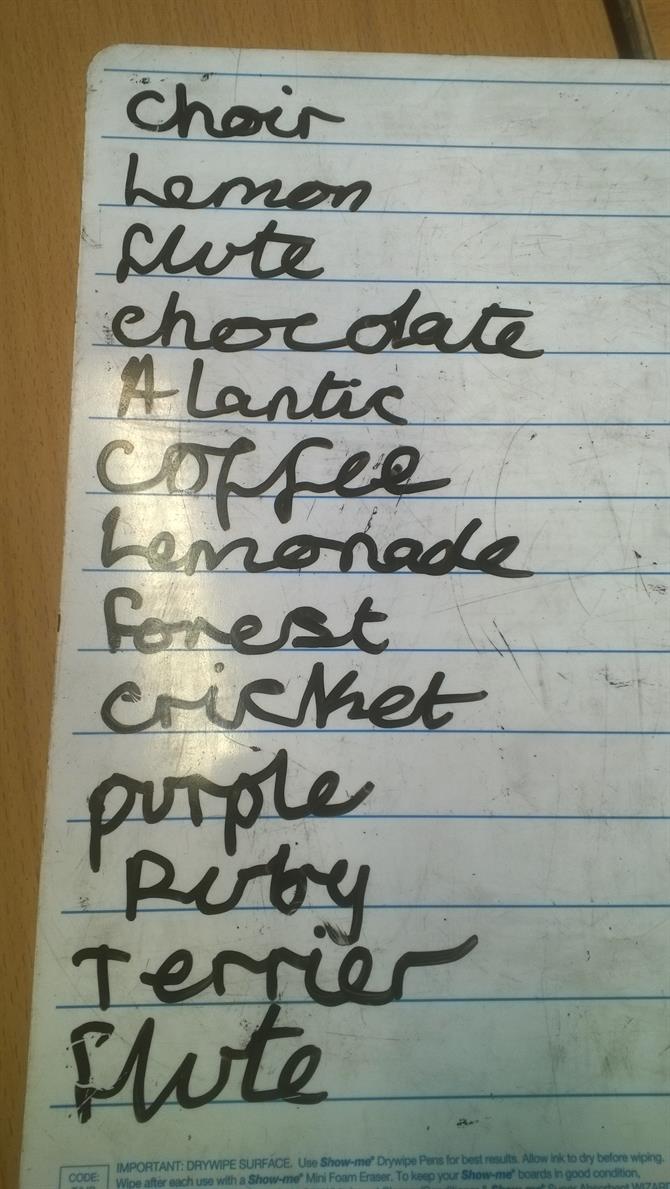 choir
Lemon
flute
chocolate
Atlantic
coffee
Lemonade
forest
cricket
purple
Ruby
Terrier
flute
IMPORTANT: DRYWIPE SURFACE. Use Show-me® Drywipe Pens for best results. Allow ink to dry before wiping.
CODE: Wipe after each use with a Show-me® Mini Foam Eraser. To keep your Show-me® boards in good condition,